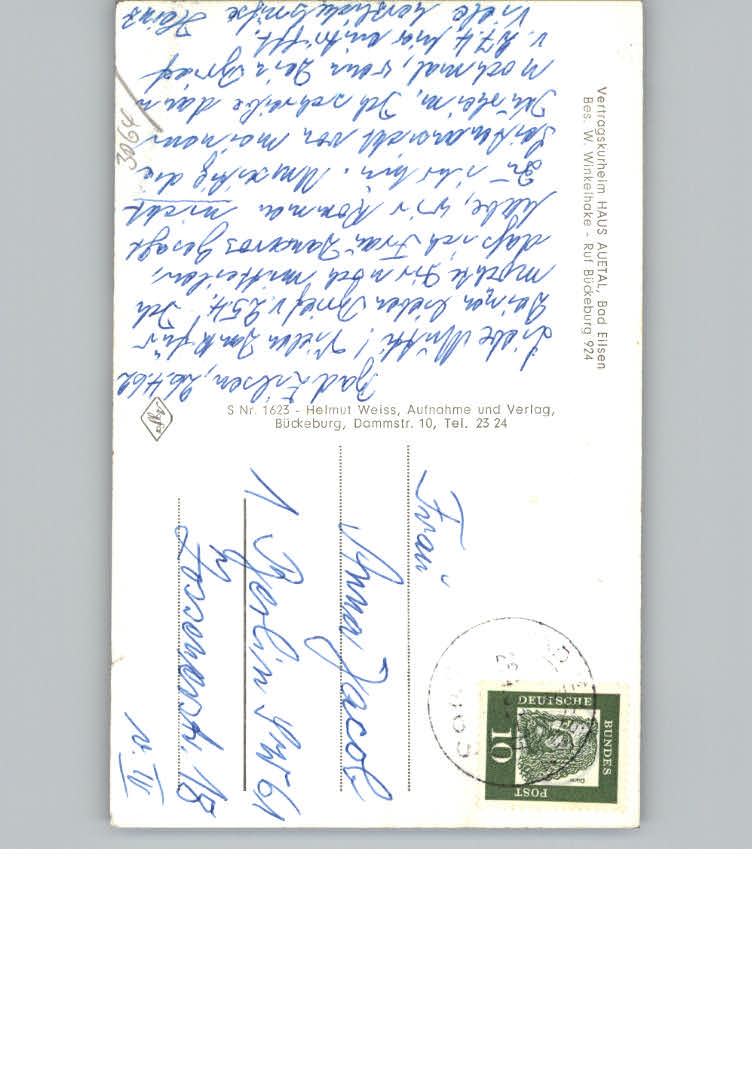 Vertragskurheim HAUS AUETAL, Bad Eilsen
Bes. W. Winkelhake - Ruf Bückeburg 924
Bad Eilsen, 26.4.62
Liebe Mutti! Vielen Dank für
Deinen lieben Brief v. 25.4. Ich
möchte Dir noch mitteilen,
daß ich Frau gesagt
habe, wir kommen nicht
zu ihr hin. Umseitig die
Seitenansicht von meinem
Ich schreibe dann
nochmal, wenn Dein Brief
v. 27.4. hier eintrifft.
Viele herzliche Grüße Heinz
3064
S Nr. 1623 - Helmut Weiss, Aufnahme und Verlag,
Bückeburg, Dammstr. 10, Tel. 23 24
Frau
Anna Jacob
1 Berlin SW 61
18
v. IV
DEUTSCHE
BUNDES
POST
10
Dürer